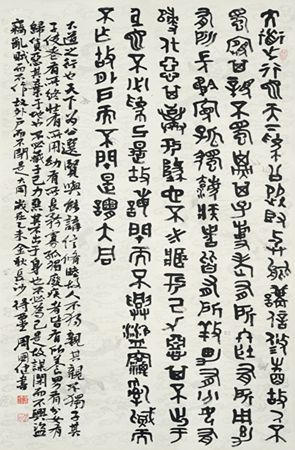 大道之行也天下為公選賢與能講信修睦故人不
獨親其親不獨子其子使老有所終壯有所用幼
有所長矜寡孤獨廢疾者皆有所養男有分女有
歸貨惡其棄於地也不必藏於己力惡其不出於身
也不必為己是故謀閉而不興盜竊亂賊而
不作故外戶而不閉是謂大同
大道之行也天下為公選賢與能講信修睦故人不獨親其親不獨子其
子使老有所終壯有所用幼有所長矜寡孤獨廢疾者皆有所養男有分女有
歸貨惡其棄於地也不必藏於己力惡其不出於身也不必為己是故謀閉而不興盜
竊亂賊而不作故外戶而不閉是大同 歲在乙未金秋長沙 周國健書